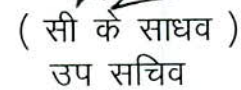 ( सी के साधव )
उप सचिव